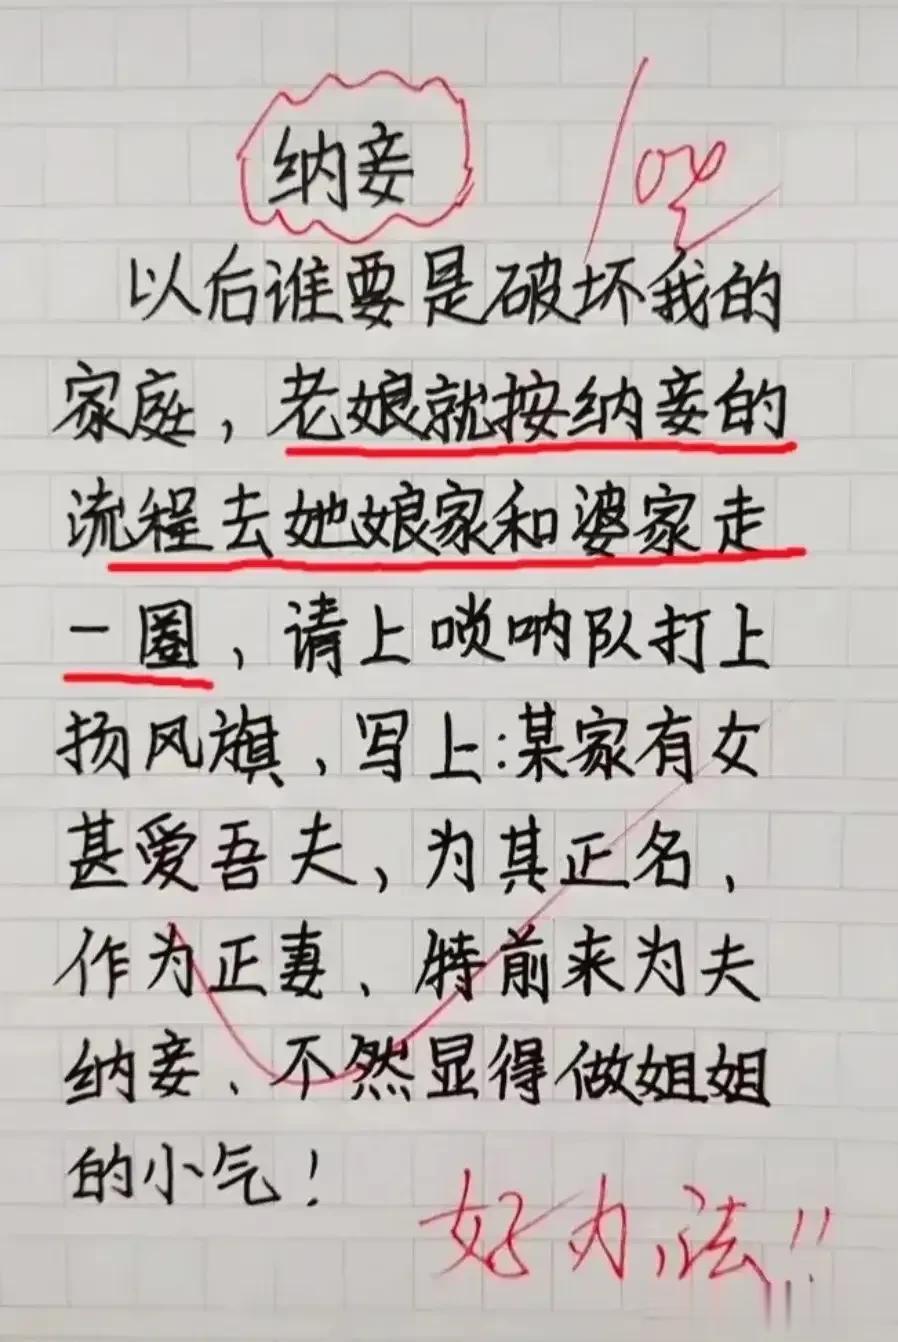 纳妾
100
以后谁要是破坏我的
家庭,老娘就按纳妾的
流程去她娘家和婆家走
一圈,请上唢呐队打上
扬风旗,写上:某家有女
甚爱吾夫,为其正名,
作为正妻、特前来为夫
纳妾、不然显得做姐姐
的小气!
好办法!!